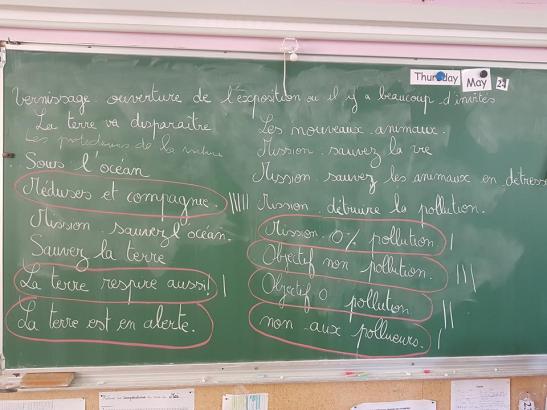 Thursday May 24
Vernissage : ouverture de l'exposition où il y a beaucoup d'invités
La terre va disparaître
Les protecteurs de la nature
Sous l'océan
Méduses et compagnie.
Mission : sauvez l'océan.
Sauvez la terre
La terre respire aussi!
La terre est en alerte.
Les nouveaux animaux.
Mission : sauvez la vie
Mission : sauvez les animaux en détresse
Mission : détruire la pollution.
Mission : 0% pollution
Objectif non pollution.
Objectif 0 pollution
non aux pollueurs.